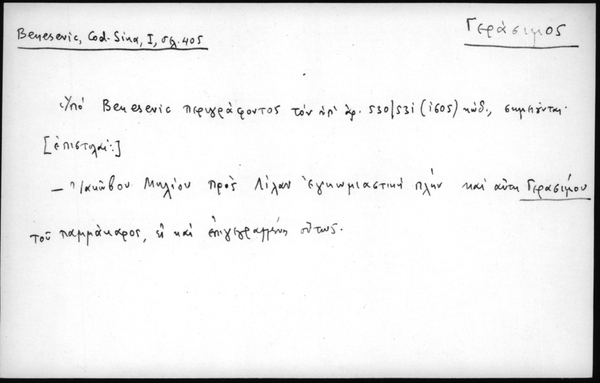 Γεράσιμος
Benesevic, Cod. Sina, I, σελ. 405
Ὑπὸ Benesevic περιγράφοντος τὸν ὑπ' ἀρ. 530/531 (1605) κώδ., σημειοῦνται·
[ἐπιστολαί:]
— Ἰακώβου Μηλίου πρὸς Λίλαν ἐγκωμιαστική πλὴν καὶ αὕτη Γερασίμου
τοῦ παμμάκαρος, εἰ καὶ ἐπιγεγραμμένη οὕτως.